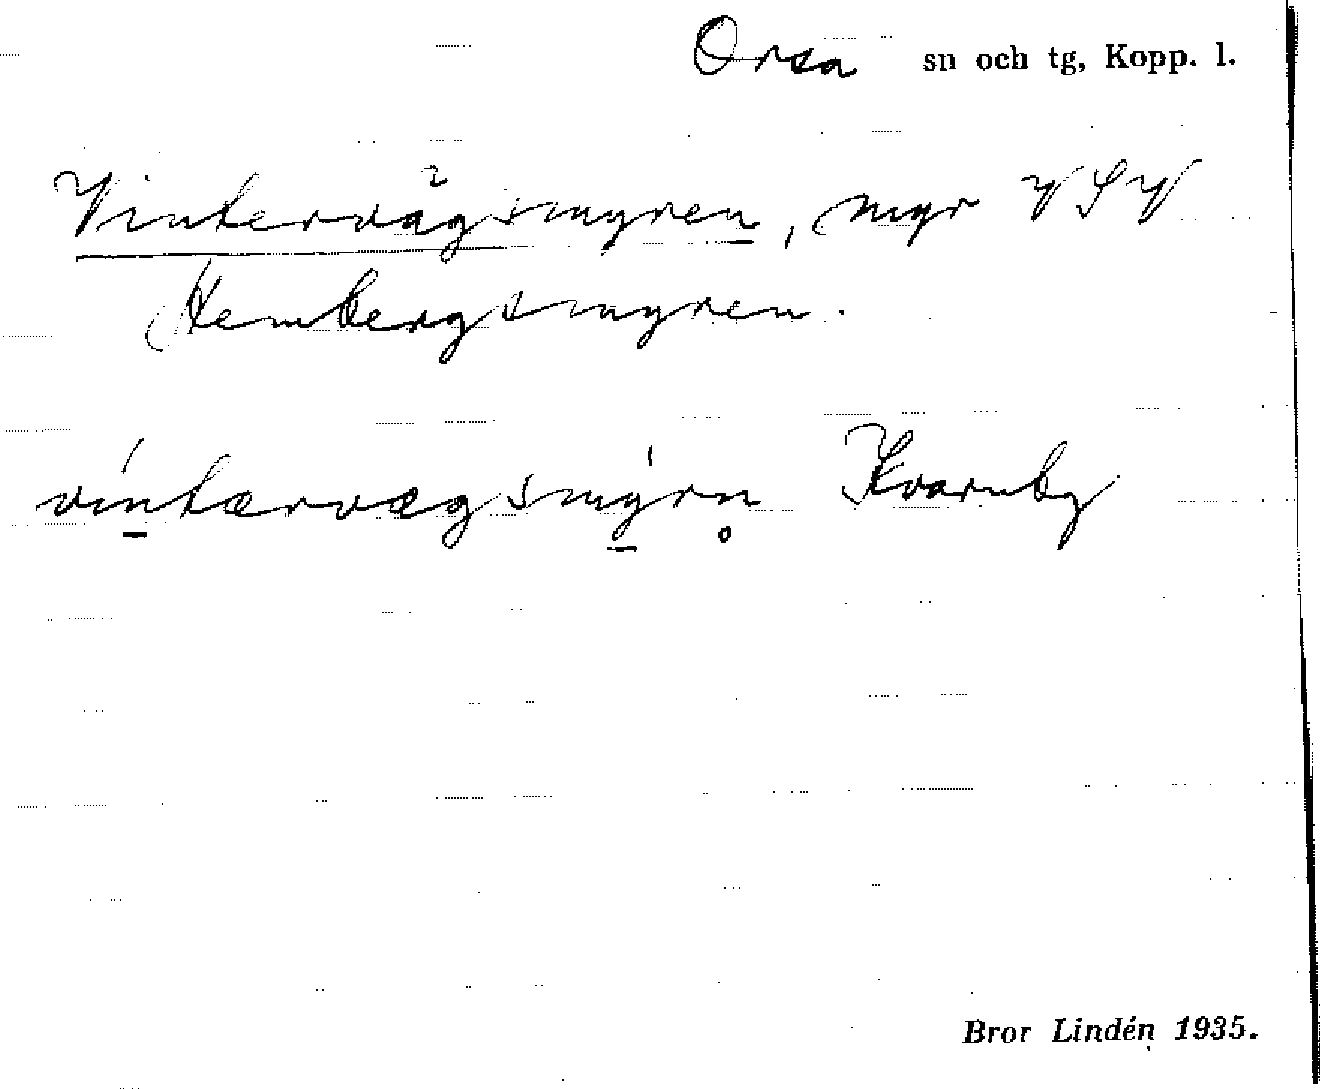 Orsa sn och tg, Kopp. l.
Vintervägsmyren, myr VSV
Hembergsmyren.
víntærvægsmýrn̥ Kvarnby
Bror Lindén 1935.